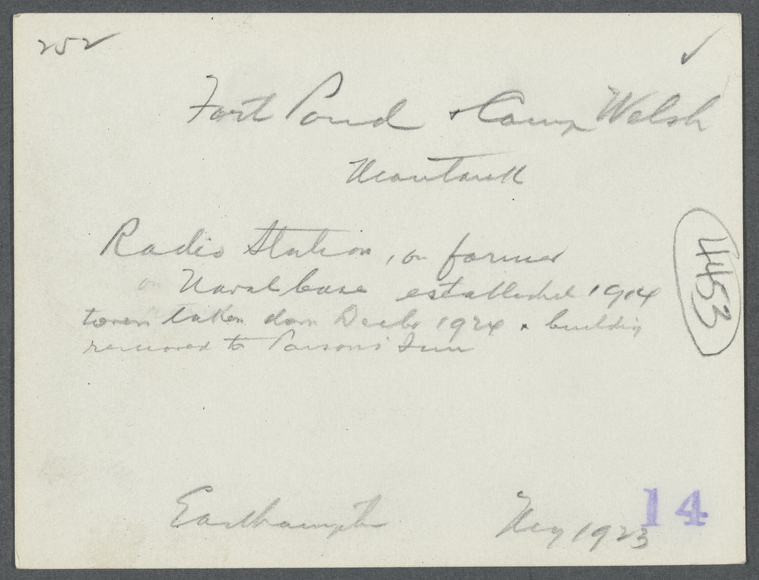 252 ✓
Fort Pond + Camp Welsh
Montauk
Radio Station, on former
on Naval base established 1914
tower taken down Decbr 1924 + building
removed to Parsons' Inn
4453
Easthampton May 1923
14